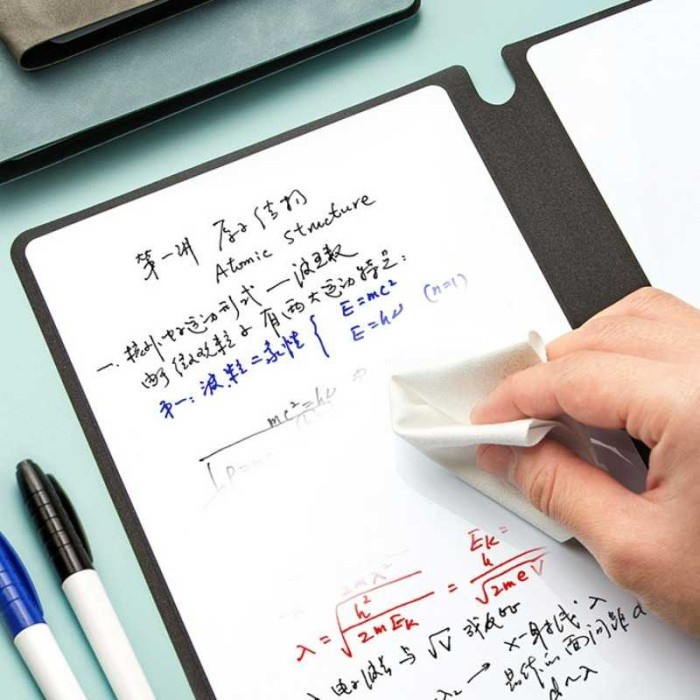 第一讲 原子结构
Atomic Structure
一、核外电子运动形式—波函数
由于微观粒子有两大运动特点:
第一:波粒二象性 { E=mc² (n=1)
E=hν
mc²=hν ⇒
P=mc
λ = √(h²/2mEk) = h/√(2meV)
λ电子波长与√V成反比
λ → X-射线 λ
晶体的面间距 d
d~λ